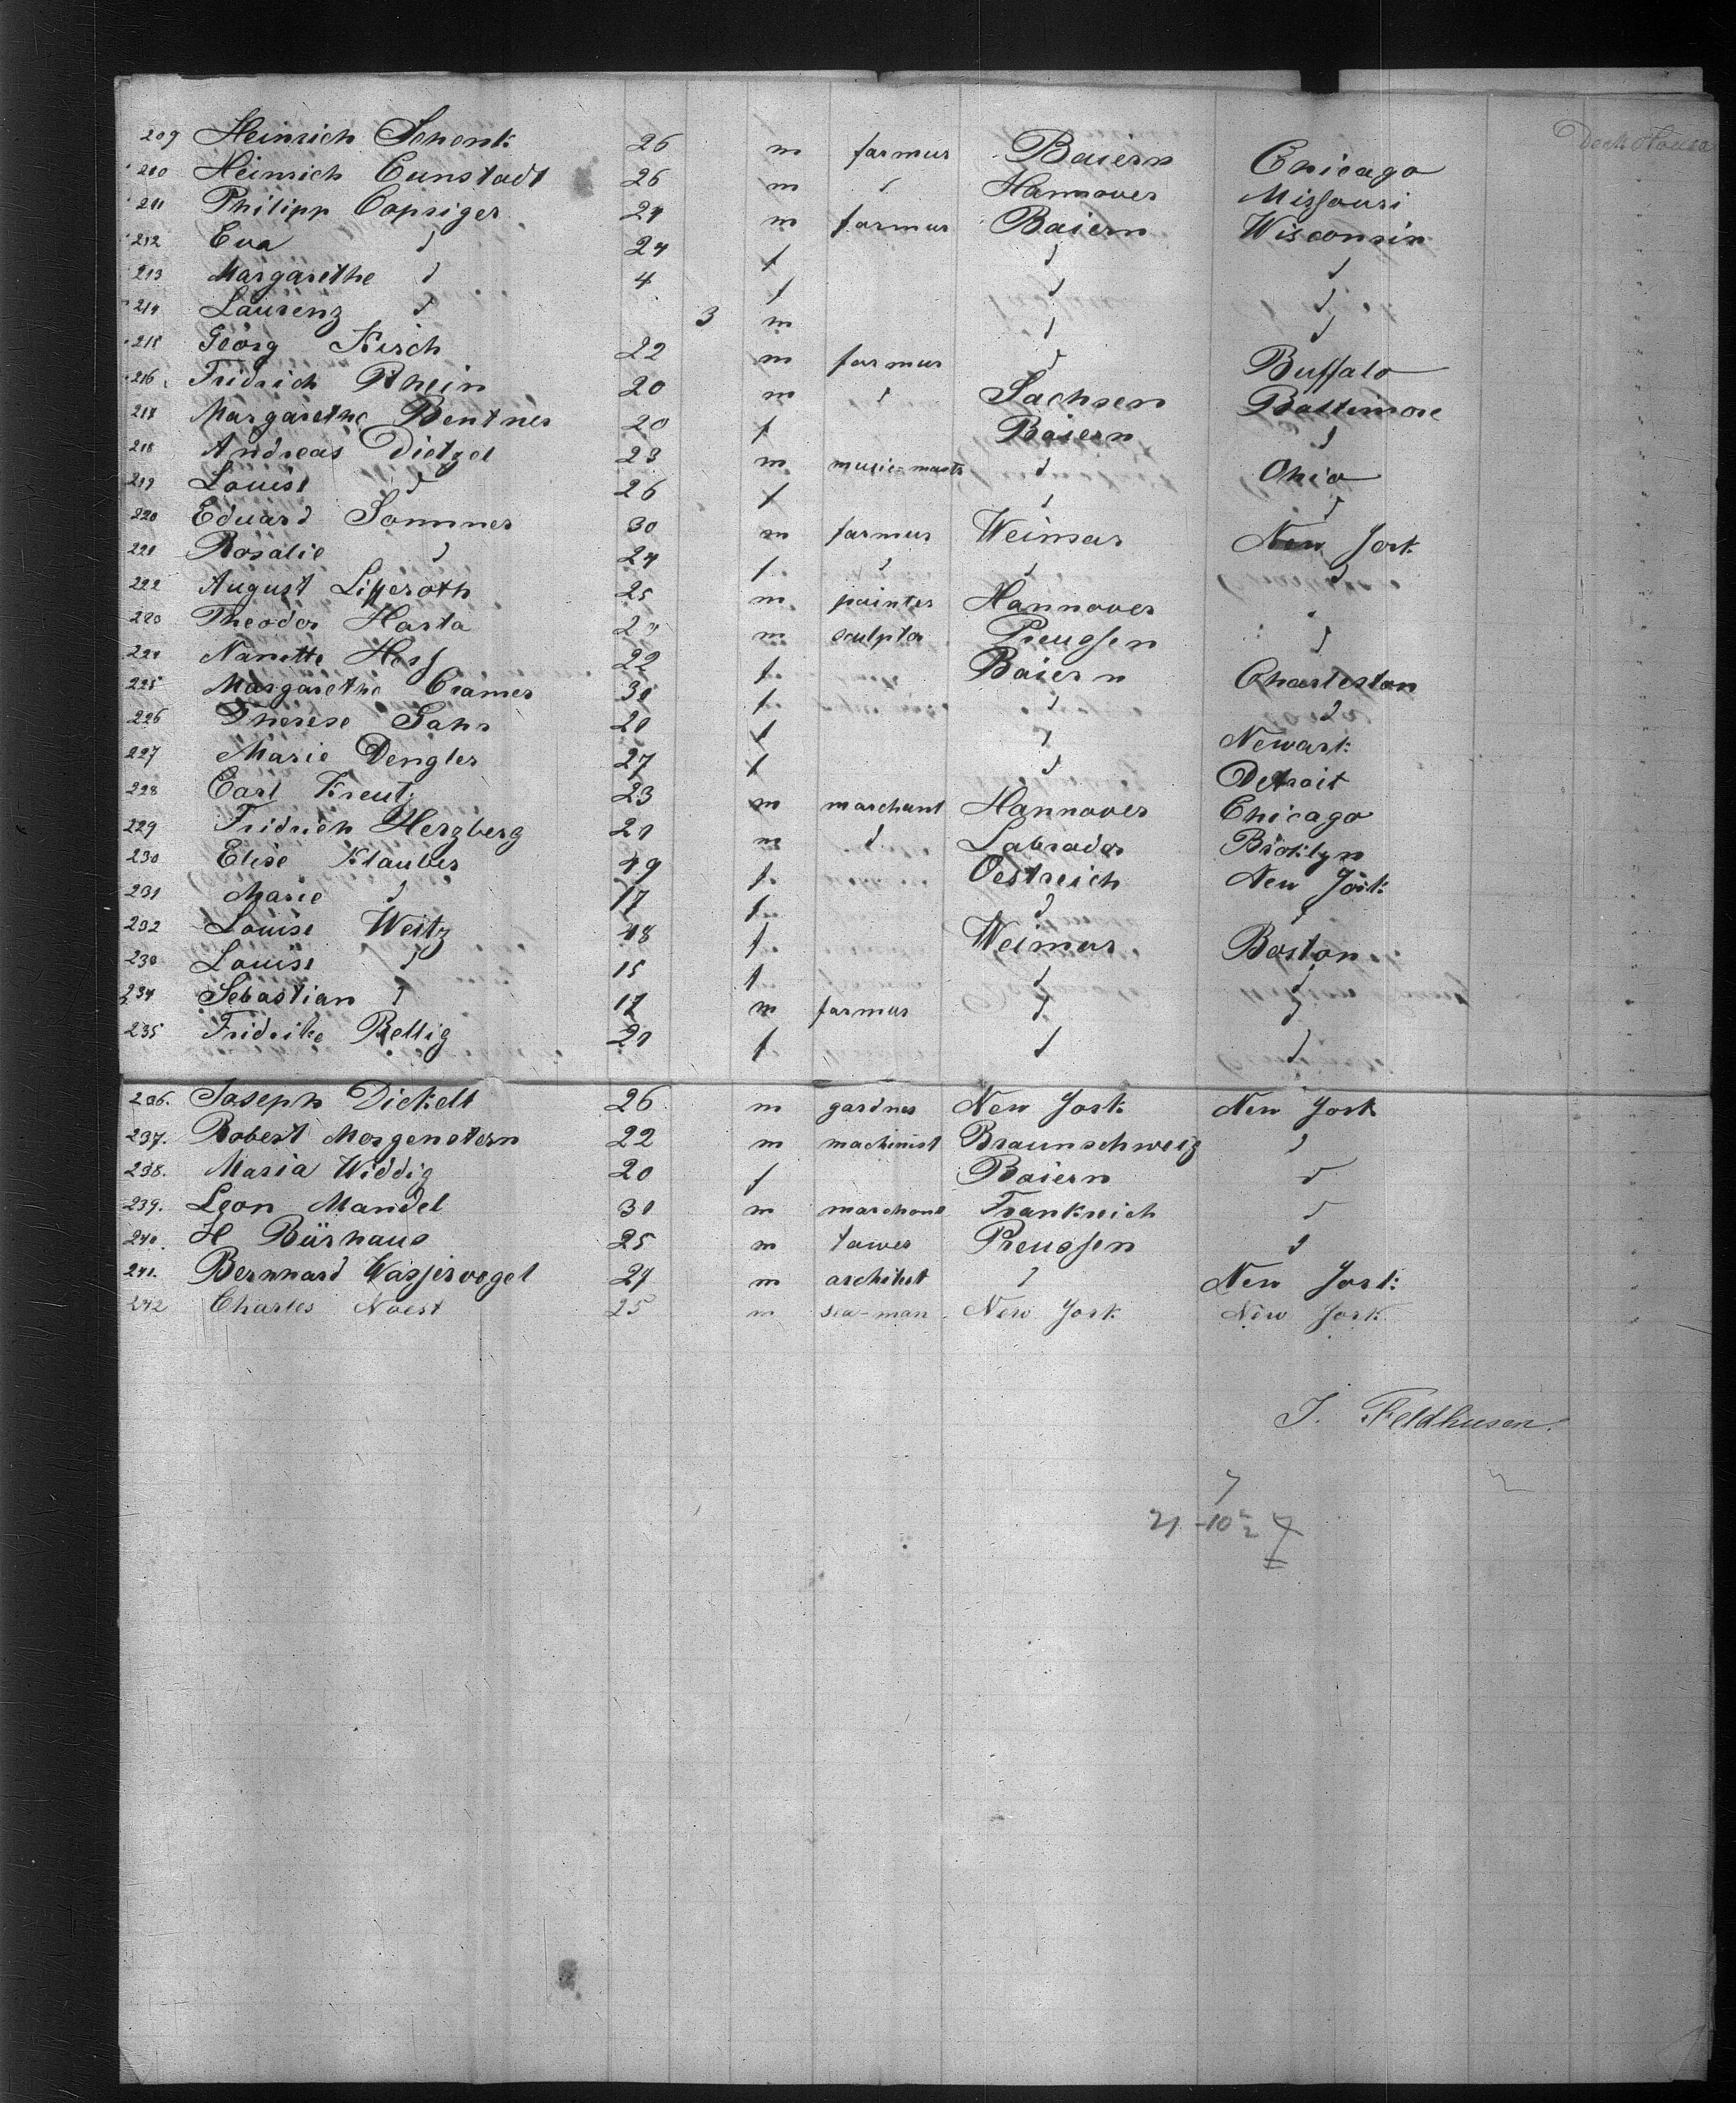 Deck House
209 Heinrich Schenk 26 m farmur Baiern Chicago
210 Heinrich Cunstadt 26 m d Hannover Missouri
211 Philipp Capsiger 24 m farmur Baiern Wisconsin
212 Eva d 24 f d d
213 Margarethe d 4 f d d
214 Laurenz d 3 m d d
215 Georg Kirch 22 m farmur d Buffalo
216 Fridrich Rhein 20 m d Sachsen Baltimore
217 Margarethe Bentner 20 f Baiern d
218 Andreas Dietzel 23 m music-mastr d Ohio
219 Louise d 26 f d d
220 Eduard Sommer 30 m farmur Weimar New York
221 Rosalie d 24 f d d d
222 August Lipperoth 25 m painter Hannover
223 Theodor Harta m sculptor Preussen d
224 Nanette Hess 22 f Baiern Charleston
225 Margarethe Cramer 30 f d d
226 Therese Sahr 20 f d Newark
227 Marie Dengler 27 f d Detroit
228 Carl Kreutz 23 m marchant Hannover Chicago
229 Fridrich Herzberg 21 m d Labrador Broklyn
230 Elise Klauber 49 f Oestreich New York
231 Marie d 17 f d d
232 Louise Weitz 48 f Weimar Boston
233 Louise d 15 f d d
234 Sebastian d 17 m farmur d d
235 Fridrike Rellig 21 f d d
236. Joseph Dickelt 26 m gardner New York New York
237. Robert Morgenstern 22 m machinist Braunschweig d
238. Maria Widdig 20 f Baiern d
239. Leon Mandel 30 m marchant Frankreich d
240. H Bürhaus 25 m tawer Preussen d
241. Bernhard Wasservogel 24 m architect d New York
242 Charles Noest 25 m sea-man New York New York
J. Feldhusen.
7